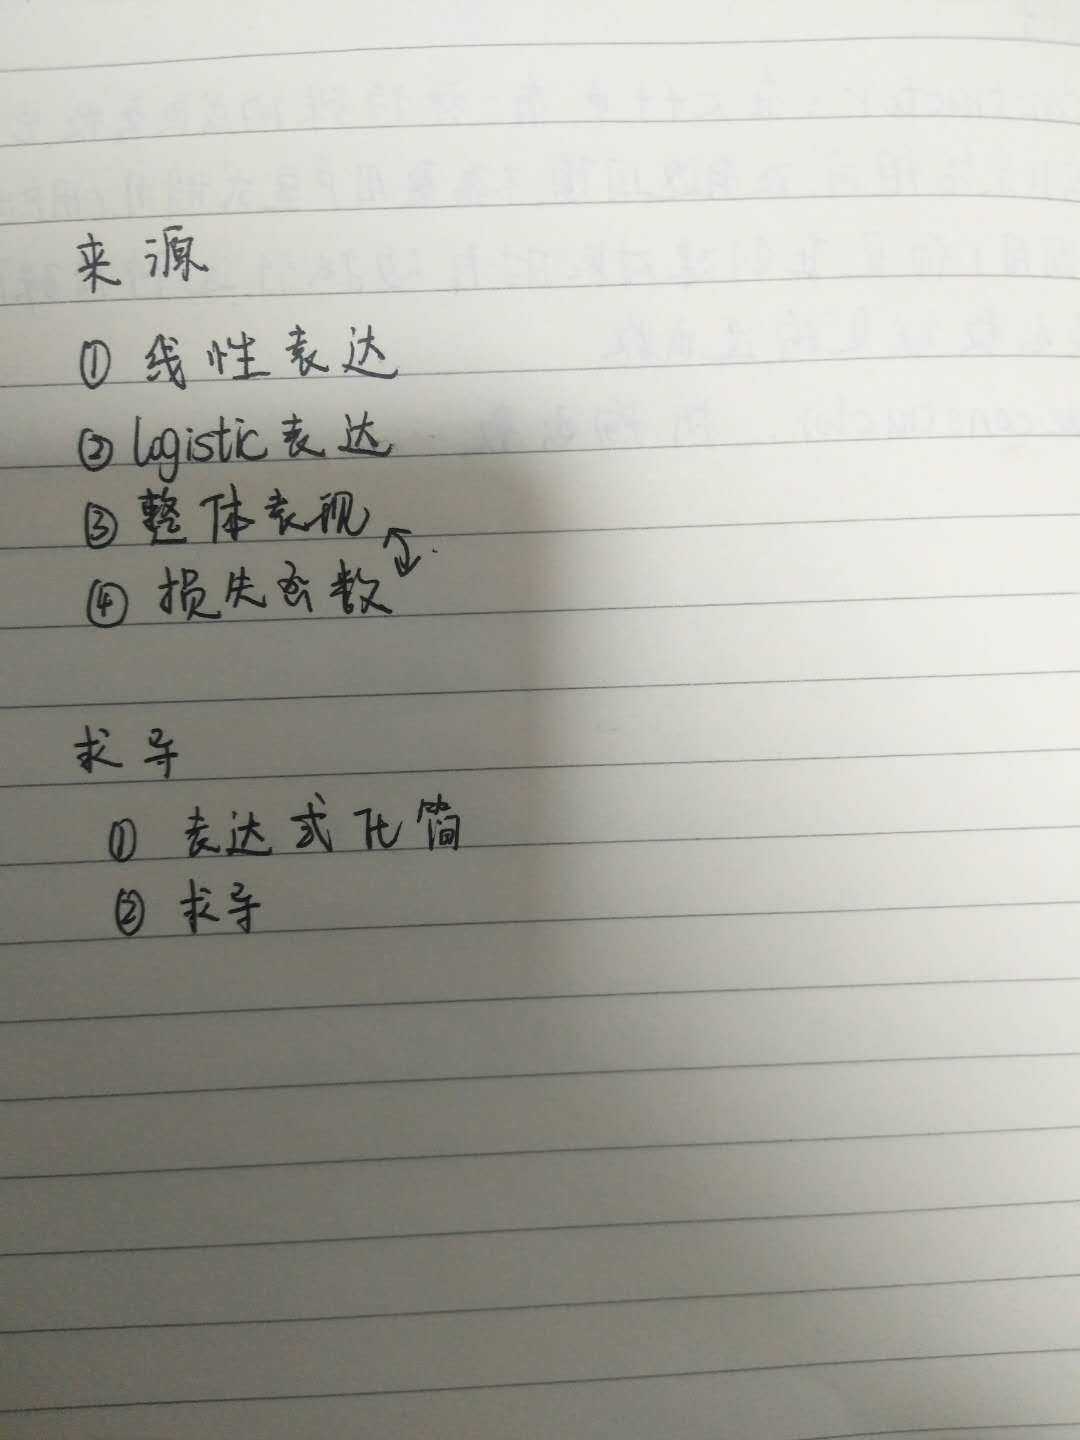 来源
① 线性表达
② logistic表达
③ 整体表现
④ 损失函数
求导
① 表达式化简
② 求导